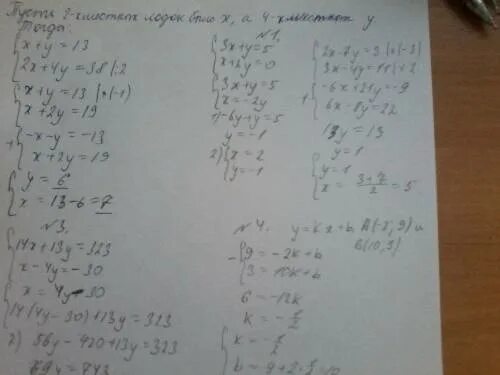 Пусть 2-хместных лодок было x, а 4-хместных y
Тогда:
{x+y=13
2x+4y=38 |:2
{x+y=13 |·(-1)
x+2y=19
+{-x-y=-13
x+2y=19
{y=6
x=13-6=7
№1.
{3x+y=5
x+2y=0
{3x+y=5
x=-2y
1) -6y+y=5
y=-1
2) {x=2
y=-1
{2x-7y=3 |·(-3)
3x-4y=11 |·2
+{-6x+21y=-9
6x-8y=22
13y=13
y=1
{y=1
x=3+7/2=5
№3.
{14x+13y=323
x-4y=-30
x=4y-30
14(4y-30)+13y=323
2) 56y-420+13y=323
69y=743
№4. y=kx+b, A(-2;9) и
B(10;3)
-{9=-2k+b
3=10k+b
6=-12k
k=-1/2
{k=-1/2